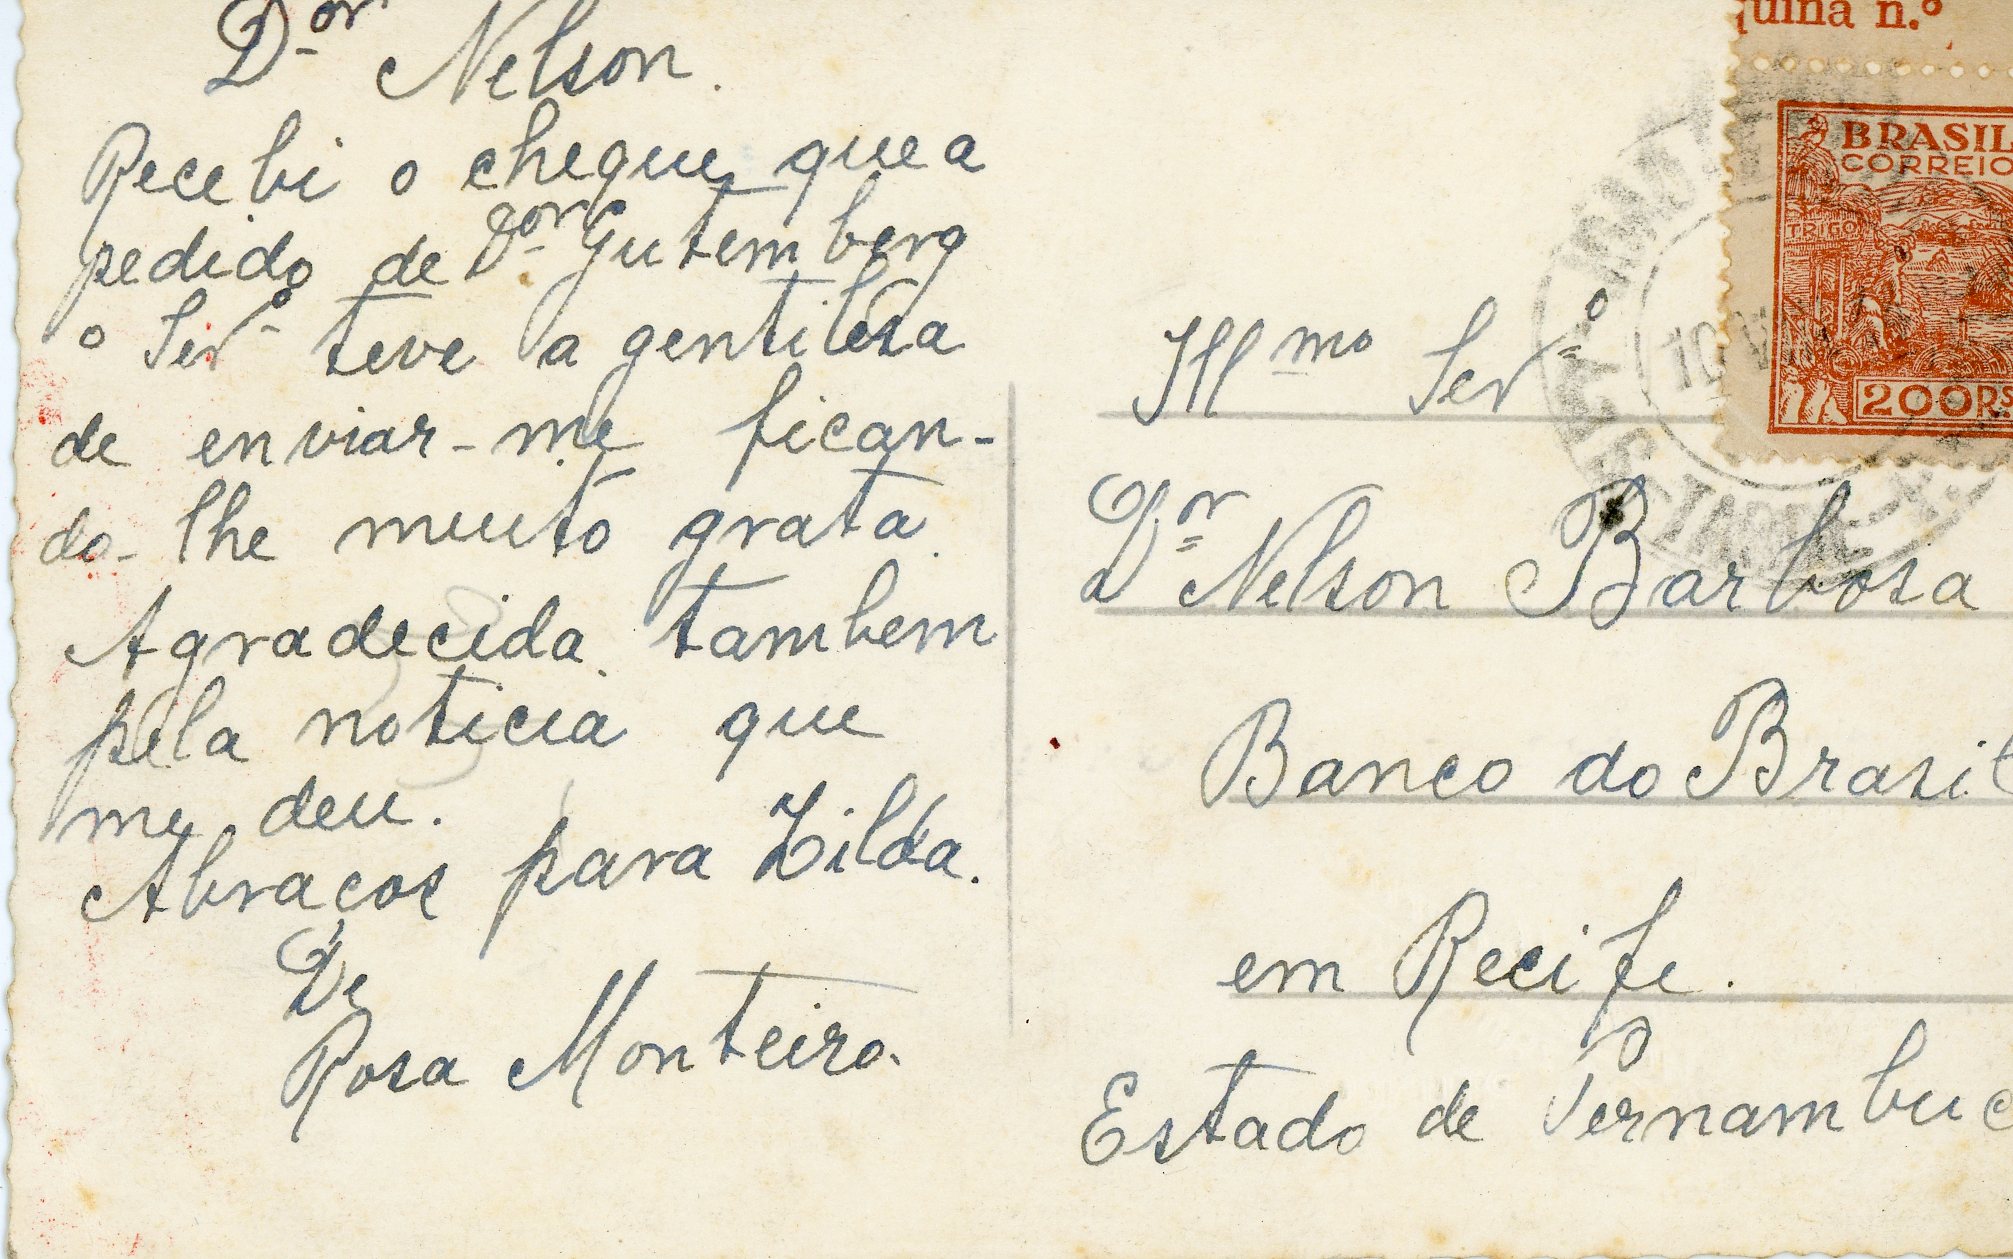 Dor Nelson.
Recebi o cheque que a
pedido de Dor Gutemberg
o Senro teve a gentilêsa
de enviar-me fican-
do-lhe muito grata.
Agradecida tambem
pela noticia que
me deu.
Abraços para Zilda.
De
Rosa Monteiro.
quina n.º
BRASIL
CORREIO
TRIGO
200 RS.
10
Illmo Snro
Dr Nelson Barbosa
Banco do Brasil
em Recife.
Estado de Pernambuc